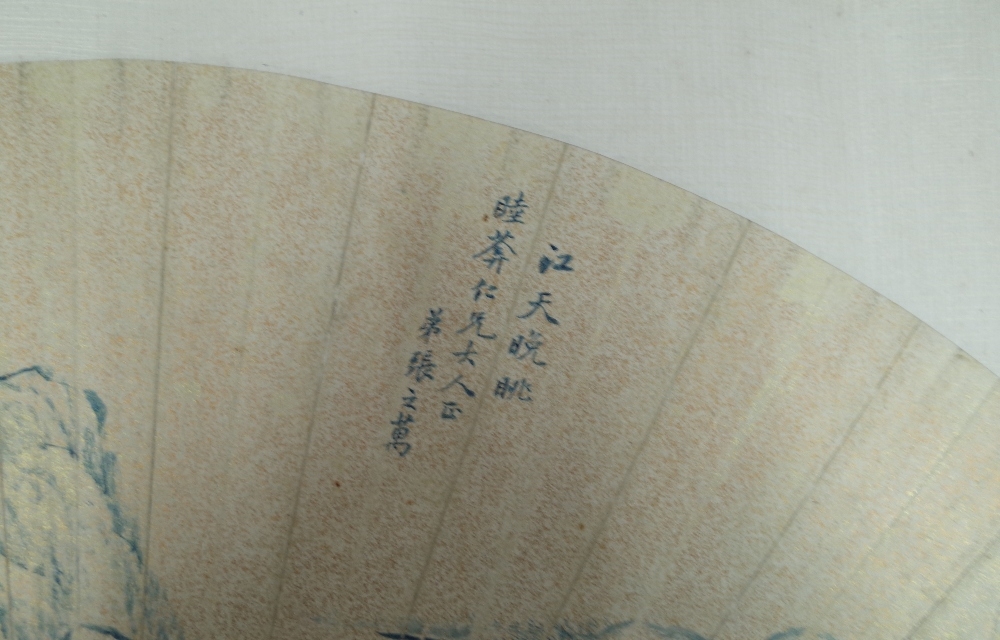 江天晚眺
睦菶仁兄大人正
弟張之萬